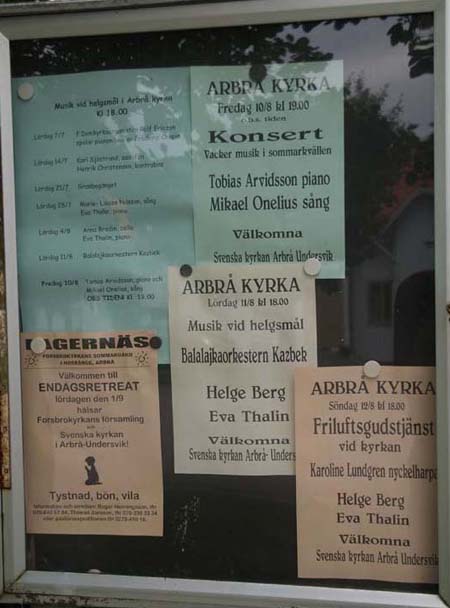 Musik vid helgsmål i Arbrå kyrka
Kl 18.00
Lördag 7/7
Rolf Ericson
spelar
Chopin
Lördag 14/7
Karl Sjöstrand,
Henrik Christensen, kontrabas
Lördag 21/7
Lördag 28/7
Marie- Louise
sång
Eva Thalin, piano
Lördag 4/8
Anna
cello
Eva Thalin, piano
Lördag 11/8
Balalajkaorkestern Kazbek
Fredag 10/8
Tobias Arvidsson, piano och
Mikael Onelius, sång
OBS TIDEN Kl 19.00
ARBRÅ KYRKA
Fredag 10/8 kl 19.00
o.b.s. tiden
Konsert
Vacker musik i sommarkvällen
Tobias Arvidsson piano
Mikael Onelius sång
Välkomna
Svenska kyrkan Arbrå Undersvik
ARBRÅ KYRKA
Lördag 11/8 kl 18.00
Musik vid helgsmål
Balalajkaorkestern Kazbek
Helge Berg
Eva Thalin
Välkomna
Svenska kyrkan Arbrå- Unders
AGERNÄS
FORSBROKYRKANS SOMMARGÅRD
I HOSRÄNGE, ARBRÅ
Välkommen till
ENDAGSRETREAT
lördagen den 1/9
hälsar
Forsbrokyrkans församling
och
Svenska kyrkan
i Arbrå-Undersvik!
Tystnad, bön, vila
Information och anmälan: Roger
eller pastorsexpeditionen tfn 0278-
ARBRÅ KYRKA
Söndag 12/8 kl 18.00
Friluftsgudstjänst
vid kyrkan
Karoline Lundgren nyckelharpa
Helge Berg
Eva Thalin
Välkomna
Svenska kyrkan Arbrå Undersvik